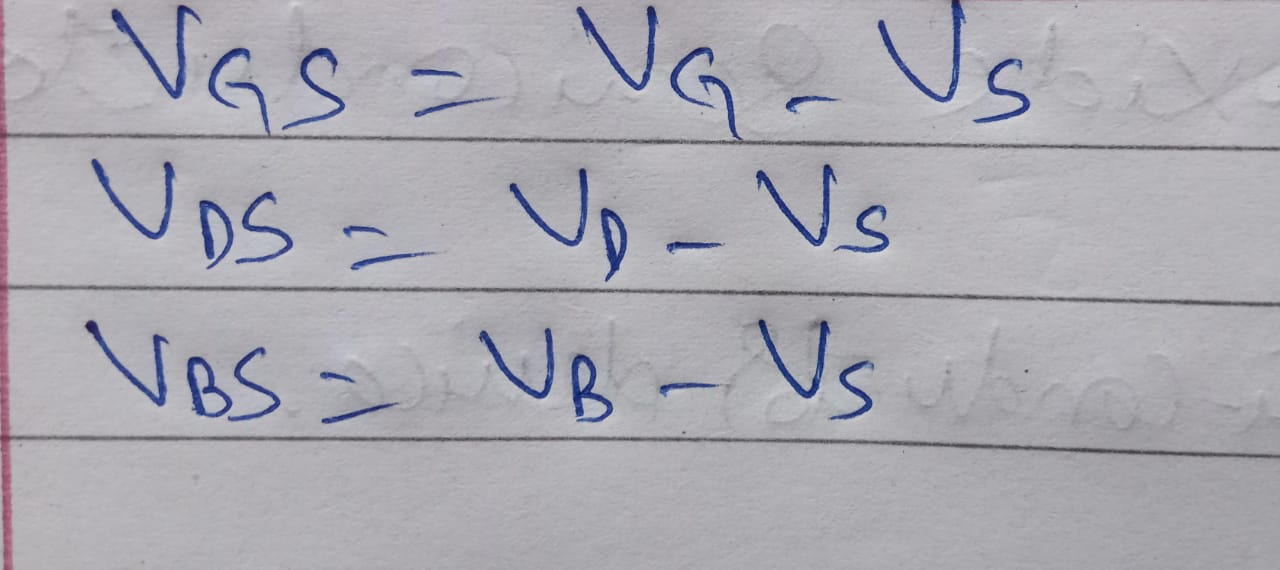 V_GS = V_G - V_S
V_DS = V_D - V_S
V_BS = V_B - V_S